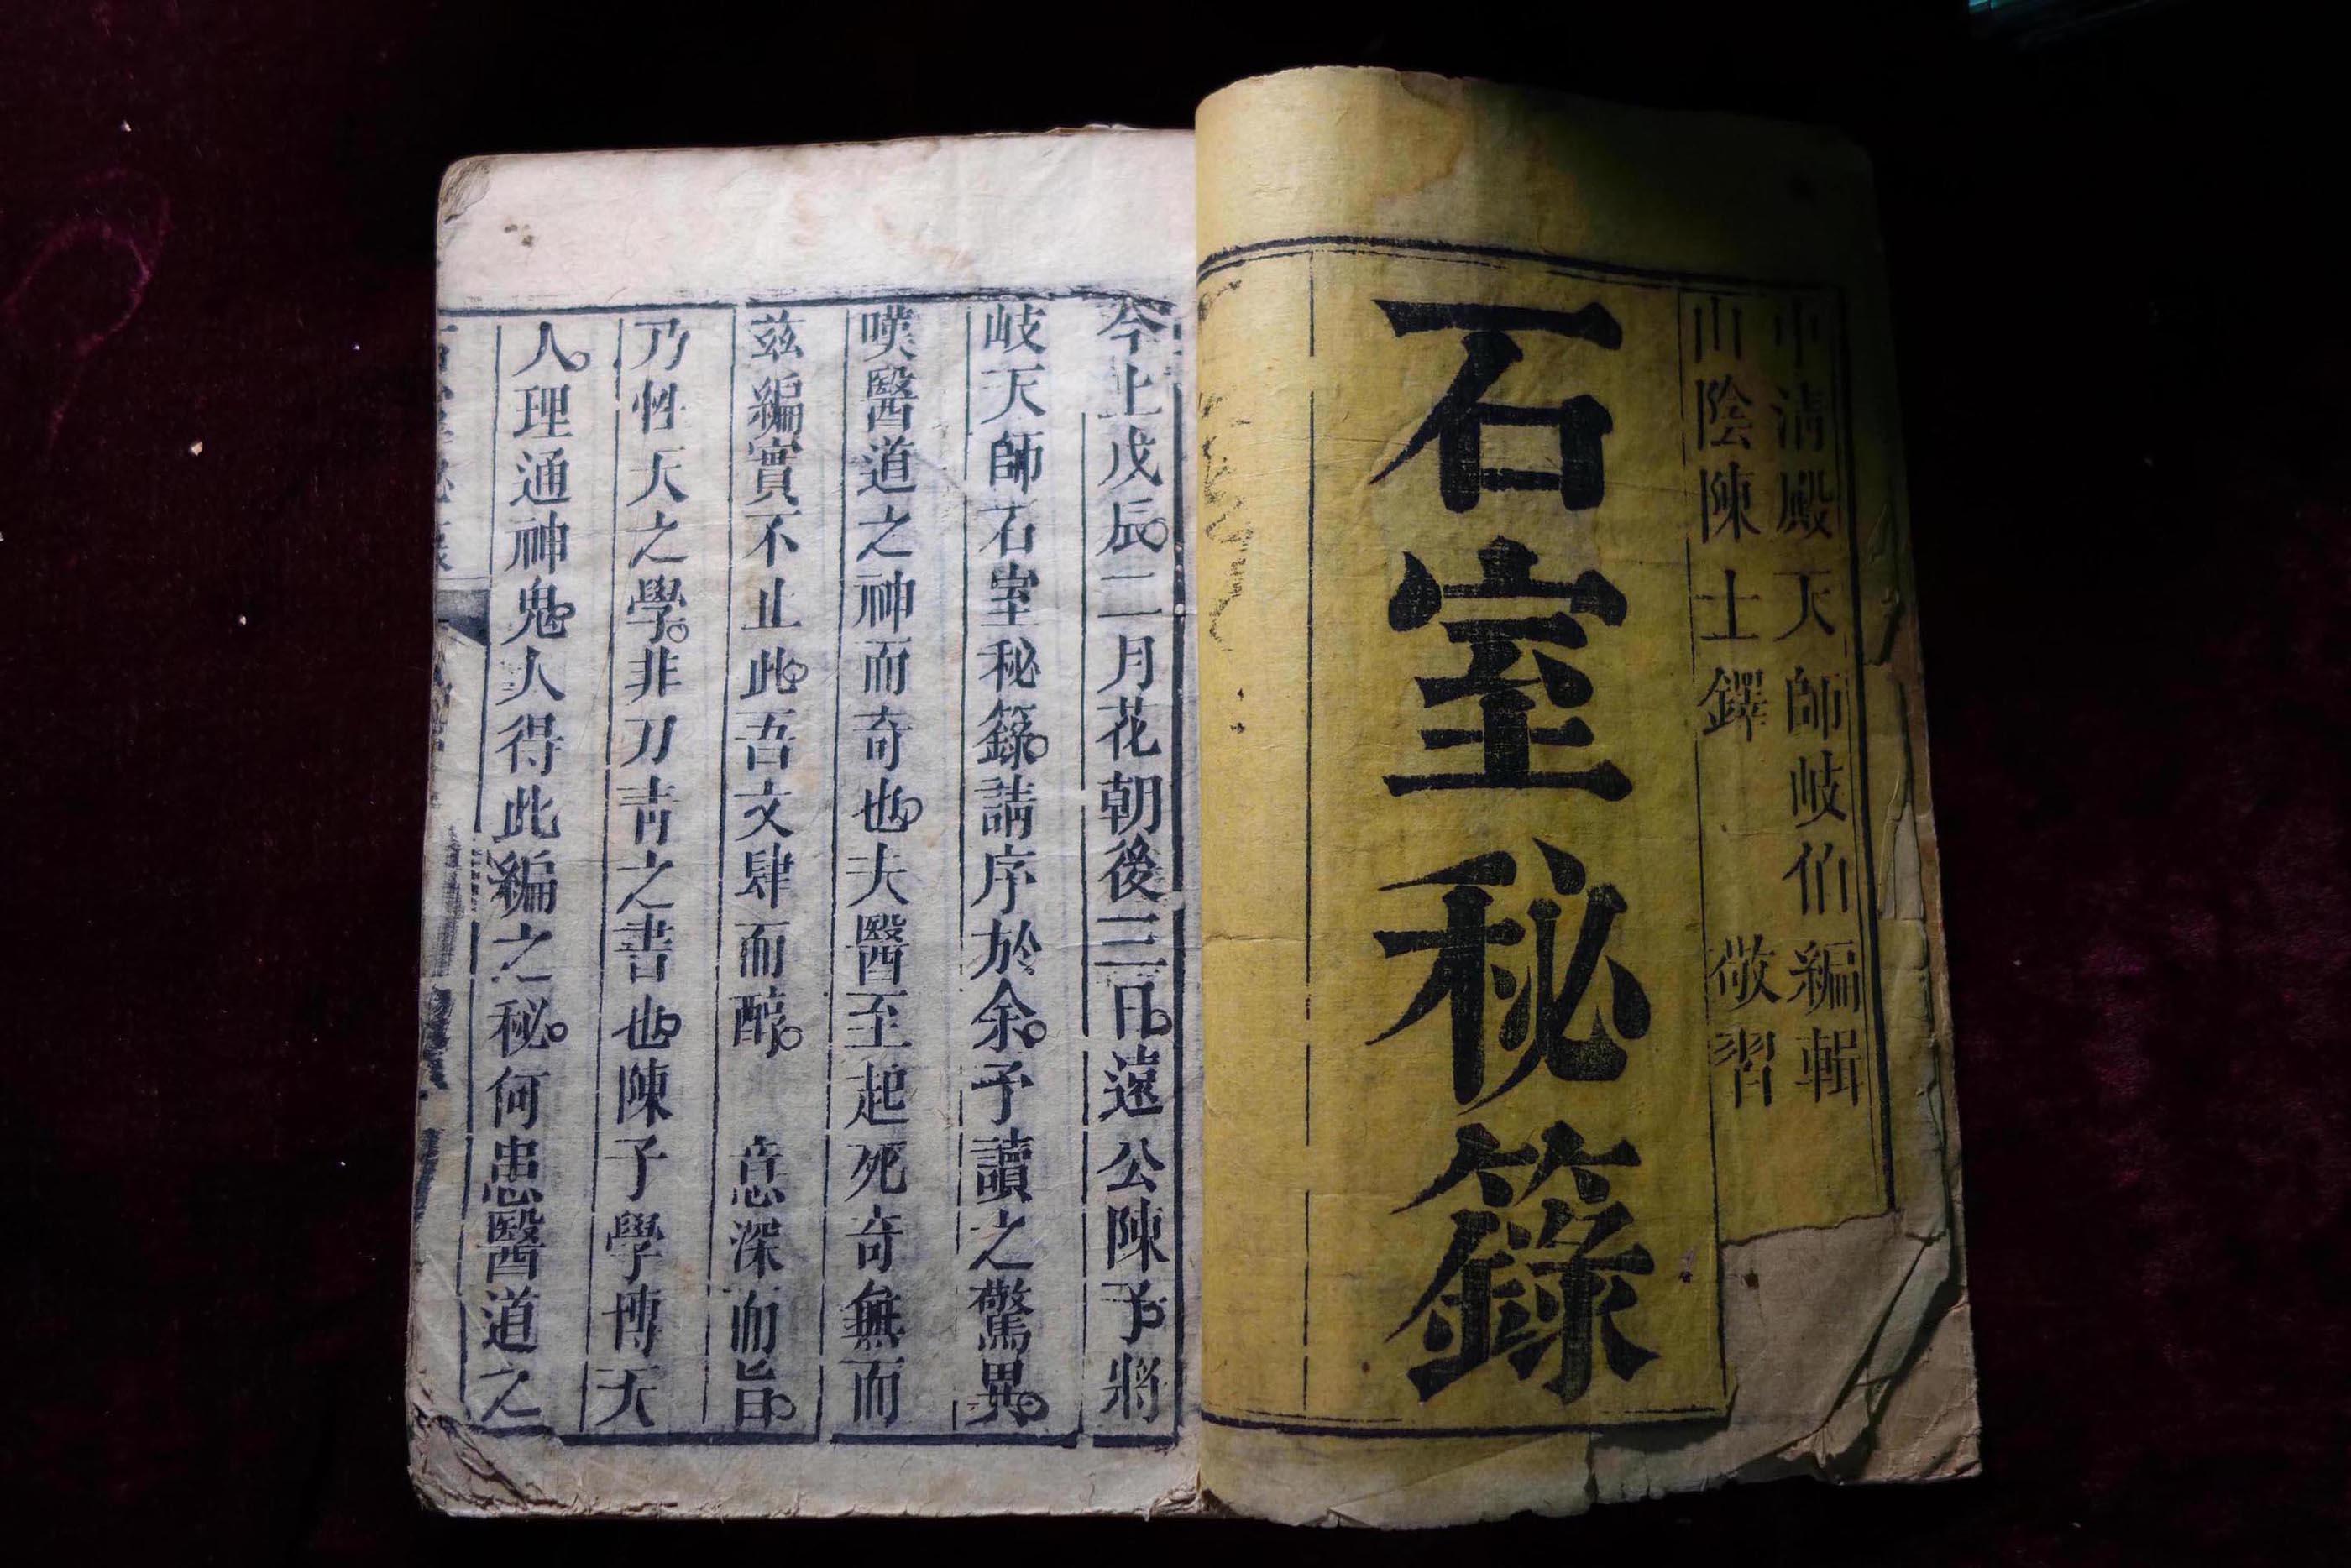 中清殿天師岐伯編輯
山陰陳士鐸 敬習
石室秘籙
今上戊辰。二月花朝後三日。遠公陳子。將
岐天師石室秘籙。請序於余。予讀之驚異。
嘆醫道之神而奇也。夫醫至起死奇無而
兹編實不止此。吾文肆而醇。 意深而旨。
乃性天之學。非刀青之書也。陳子學博天
人。理通神鬼。人得此編之秘。何患醫道之